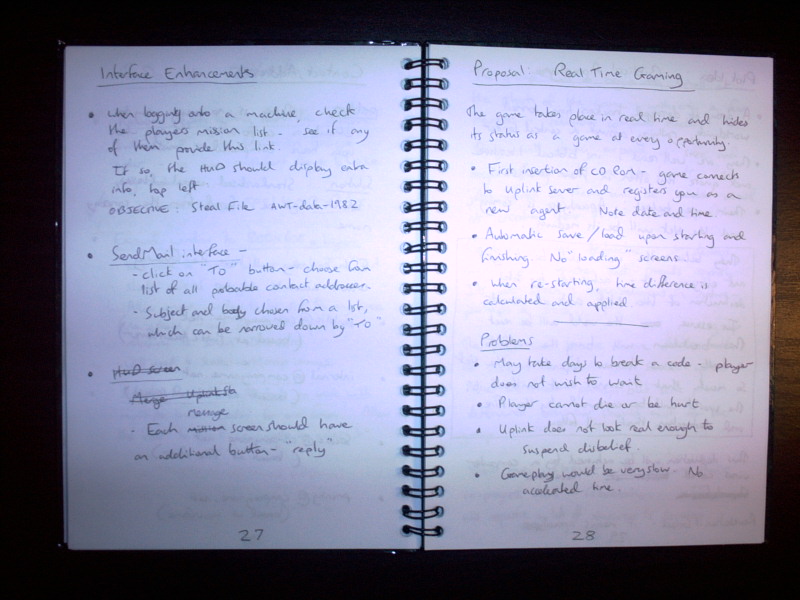 Interface Enhancements
• When logging onto a machine, check
the players mission list - see if any
of them provide this link.
If so, the HUD should display extra
info, top left
OBJECTIVE: Steal File AWT-data-1982
• SendMail interface -
- click on "TO" button - choose from
list of all probable contact addresses.
- Subject and body chosen from a list,
which can be narrowed down by "TO"
• HUD screen
Merge Uplink
message
- Each mission screen should have
an additional button - "reply"
27
Proposal: Real Time Gaming
The game takes place in real time and hides
its status as a game at every opportunity.
• First insertion of CD Rom - game connects
to Uplink server and registers you as a
new agent Note date and time.
• Automatic save/load upon starting and
finishing No "loading" screens
• When re-starting, time difference is
calculated and applied
Problems
• May take days to break a code - player
does not wish to wait
• Player cannot die or be hurt
• Uplink does not look real enough to
suspend disbelief.
• Gameplay would be very slow. No
accelerated time.
28